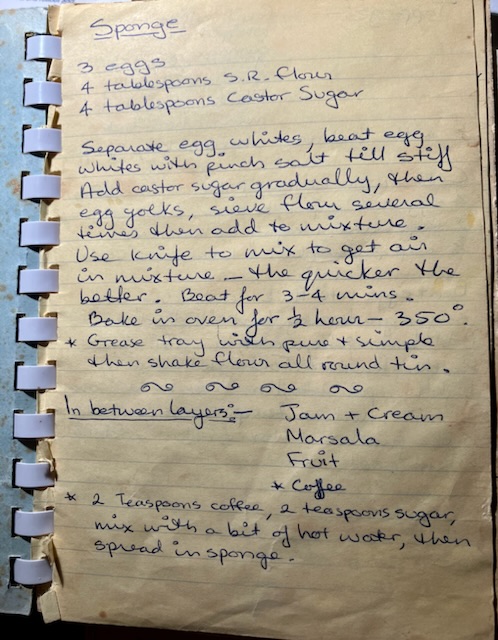 Sponge
3 eggs
4 tablespoons S.R. flour
4 tablespoons Castor Sugar
Separate egg whites, beat egg
whites with pinch salt till stiff
Add castor sugar gradually, then
egg yolks, sieve flour several
times then add to mixture.
Use knife to mix to get air
in mixture - the quicker the
better. Beat for 3-4 mins.
Bake in oven for ½ hour - 350°.
* Grease tray with pure + simple
then shake flour all round tin.
In between layers:- Jam + Cream
Marsala
Fruit
* Coffee
* 2 Teaspoons coffee, 2 teaspoons sugar,
mix with a bit of hot water, then
spread in sponge.